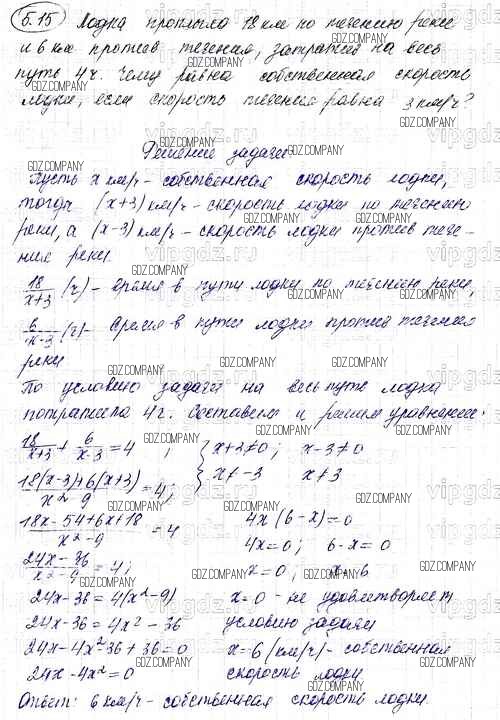 5.15 Лодка проплыла 18 км по течению реки
и 6 км против течения, затратив на весь
путь 4 ч. Чему равна собственная скорость
лодки, если скорость течения равна 3 км/ч?
Решение задачи.
Пусть x км/ч - собственная скорость лодки,
тогда (x+3) км/ч - скорость лодки по течению
реки, а (x-3) км/ч - скорость лодки против тече-
ния реки.
18/(x+3) (ч) - время в пути лодки по течению реки,
6/(x-3) (ч) - время в пути лодки против течения
реки
По условию задачи на весь путь лодка
потратила 4 ч. Составим и решим уравнение:
18/(x+3) + 6/(x-3) = 4 ; { x+3≠0 ; x-3≠0
(18(x-3)+6(x+3))/(x²-9) = 4; x≠-3 x≠3
(18x-54+6x+18)/(x²-9) = 4
(24x-36)/(x²-9) = 4;
24x-36=4(x²-9)
24x-36=4x²-36
24x-4x²-36+36=0
24x-4x²=0
4x(6-x)=0
4x=0; 6-x=0
x=0; x=6
x=0 - не удовлетворяет
условию задачи
x=6 (км/ч) - собственная
скорость лодки
Ответ: 6 км/ч - собственная скорость лодки.
GDZ.COMPANY
vipgdz.ru